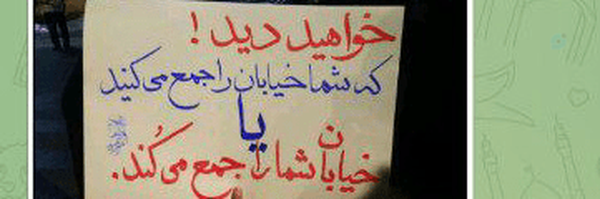 خواهید دید!
که شما خیابان را جمع می‌کنید
یا
خیابان شما را جمع می‌کُند.